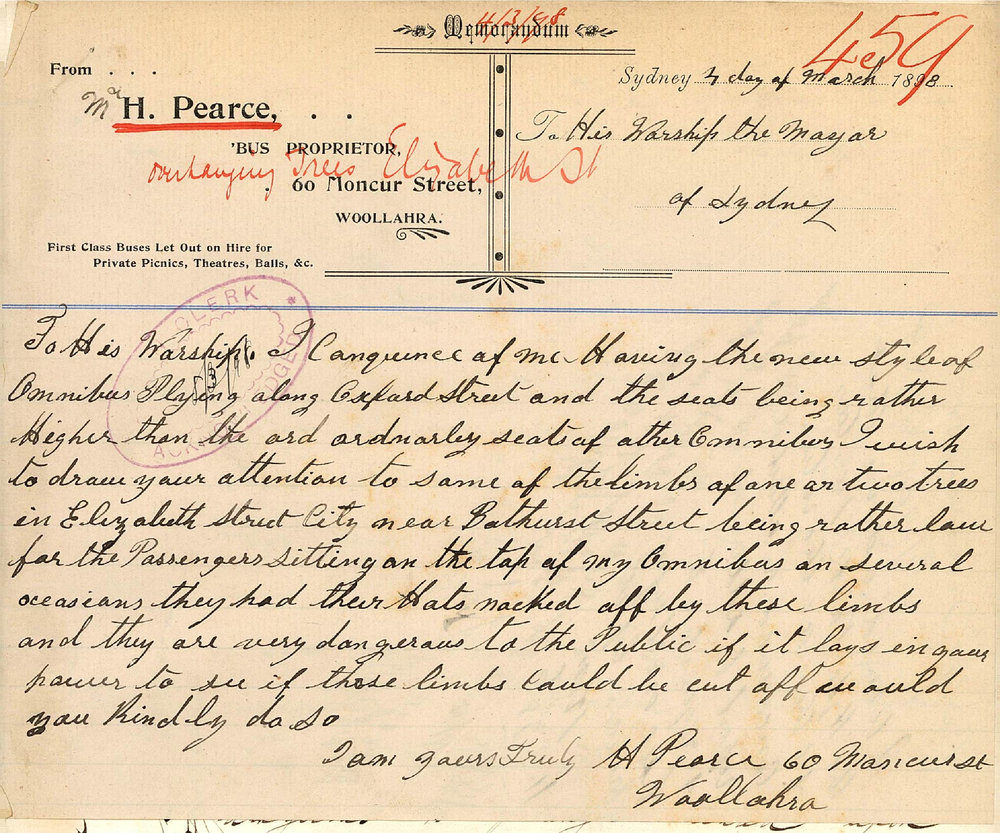 Memorandum
4/3/98
459
From . . .
Mr H. Pearce, . .
'BUS PROPRIETOR,
overhanging Trees Elizabeth St
60 Moncur Street,
WOOLLAHRA.
First Class Buses Let Out on Hire for
Private Picnics, Theatres, Balls, &c.
Sydney 4 day of March 1898
To His Warship the Mayar
of Sydney
CLERK
ACKNOWLEDGED
To His Warship. I Canquince of me Having the new style of
Omnibus Plying along Oxford Street and the seats being rather
Higher than the ord ordnarley seats of other Omnibus I wish
to draw your attention to some of the limbs of one or two trees
in Elizabeth Street City near Bathurst Street being rather low
for the Passengers sitting on the top of my Omnibus on several
occasians they had their Hats nacked off by these limbs
and they are very dangerous to the Public if it lays in your
power to see if those limbs could be cut off would
you Kindly do so
I am yours Truly H Pearce 60 Moncur st
Woollahra